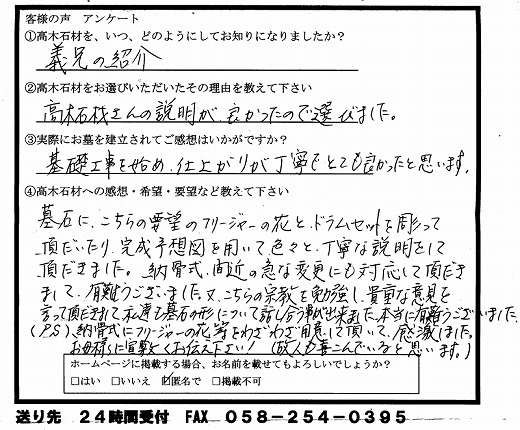 客様の声 アンケート
①高木石材を、いつ、どのようにしてお知りになりましたか？
義兄の紹介
②高木石材をお選びいただいたその理由を教えて下さい
高木石材さんの説明が、良かったので選びました。
③実際にお墓を建立されてご感想はいかがですか？
基礎工事を始め、仕上がりが丁寧でとても良かったと思います。
④高木石材への感想・希望・要望など教えて下さい
墓石に、こちらの要望のフリージャーの花と、ドラムセットを彫って
頂だいたり、完成予想図を用いて、色々と、丁寧な説明をして
頂だきました。納骨式、間近の急な変更にも対応して頂だき
まして、有難うございました。又、こちらの宗教を勉強し、貴重な意見を
言って頂だきまして、私達も墓石の形について話し合う事が出来ました。本当に有難うございました。
(P.S)、納骨式にフリージャーの花等をわざわざ用意して頂いて、感激しました。
お母様らに宜敷くお伝え下さい！（故人も喜こんでいると思います。）
ホームページに掲載する場合、お名前を載せてもよろしいでしょうか？
□はい □いいえ ☑匿名で □掲載不可
送り先 24時間受付 FAX 058-254-0395